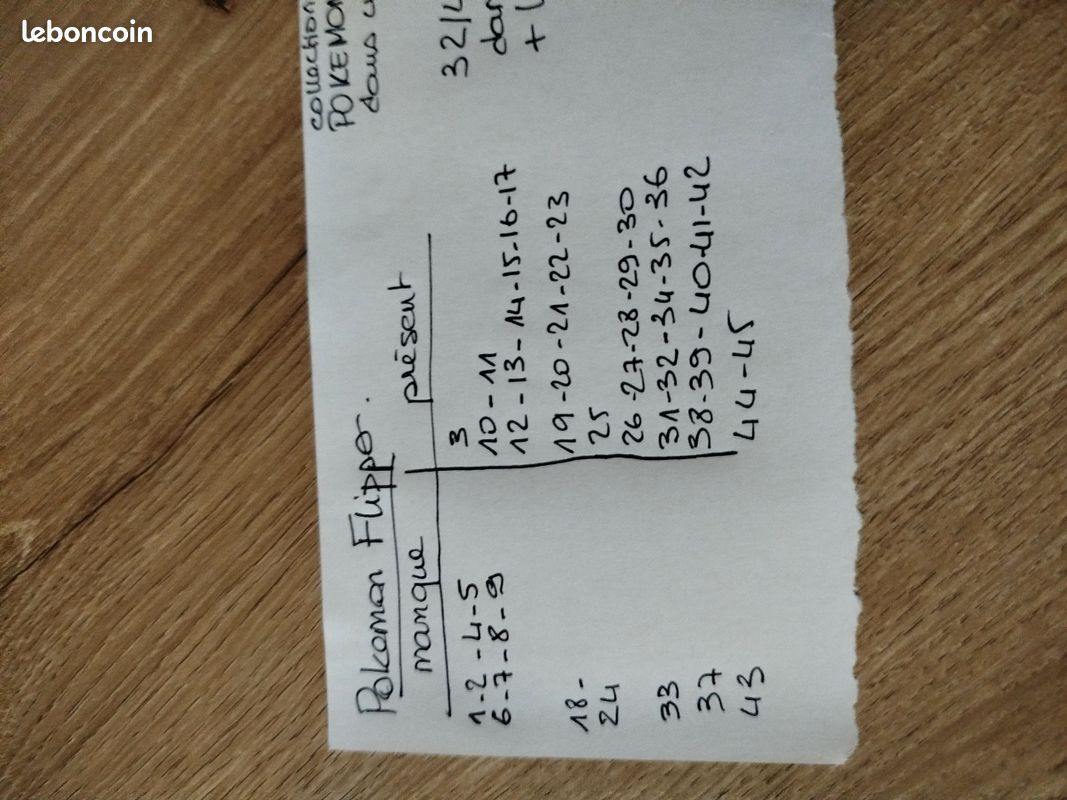 leboncoin
Pokemon Flipper.
manque présent
1-2-4-5 3
6-7-8-9 10-11
12-13-14-15-16-17
18- 19-20-21-22-23
24 25
26-27-28-29-30
33 31-32-34-35-36
37 38-39-40-41-42
43 44-45
collection
POKEMON
dans
32/